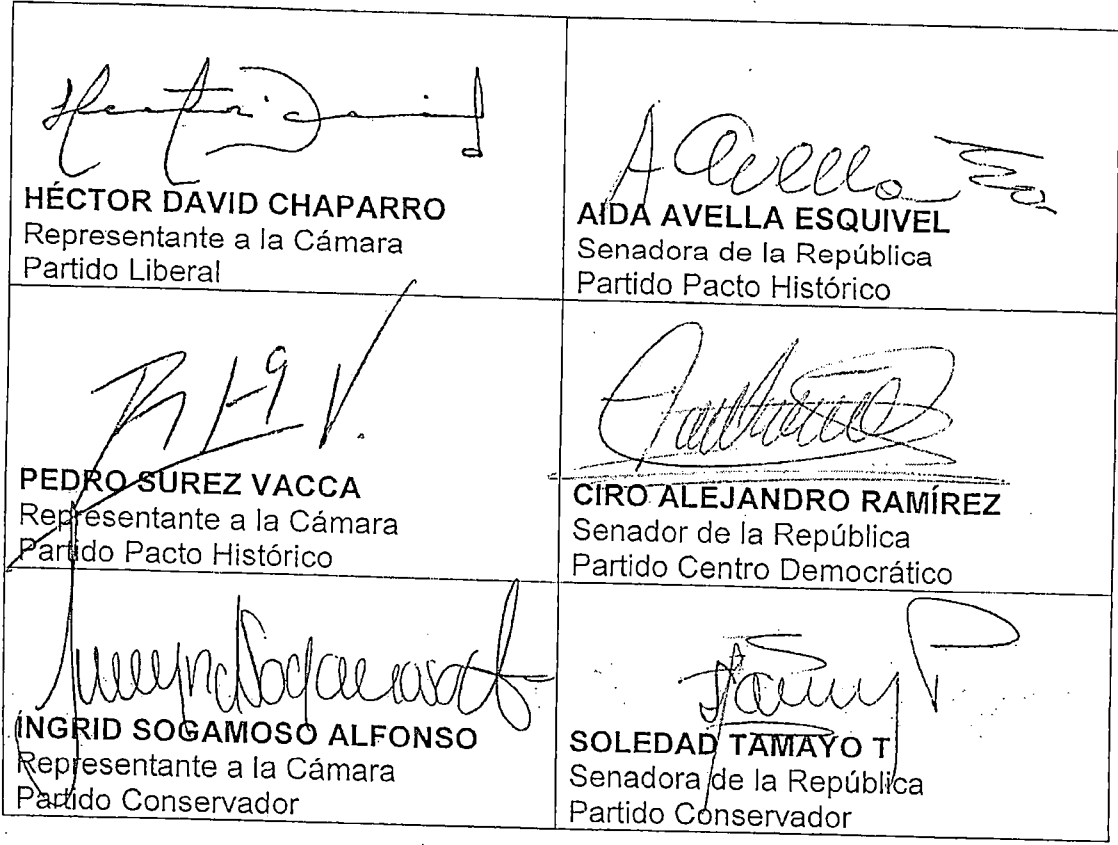 Hector David
HÉCTOR DAVID CHAPARRO
Representante a la Cámara
Partido Liberal
A Avella
AIDA AVELLA ESQUIVEL
Senadora de la República
Partido Pacto Histórico
PEDRO SUREZ VACCA
Representante a la Cámara
Partido Pacto Histórico
CIRO ALEJANDRO RAMÍREZ
Senador de la República
Partido Centro Democrático
INGRID SOGAMOSO ALFONSO
Representante a la Cámara
Partido Conservador
SOLEDAD TAMAYO T
Senadora de la República
Partido Conservador